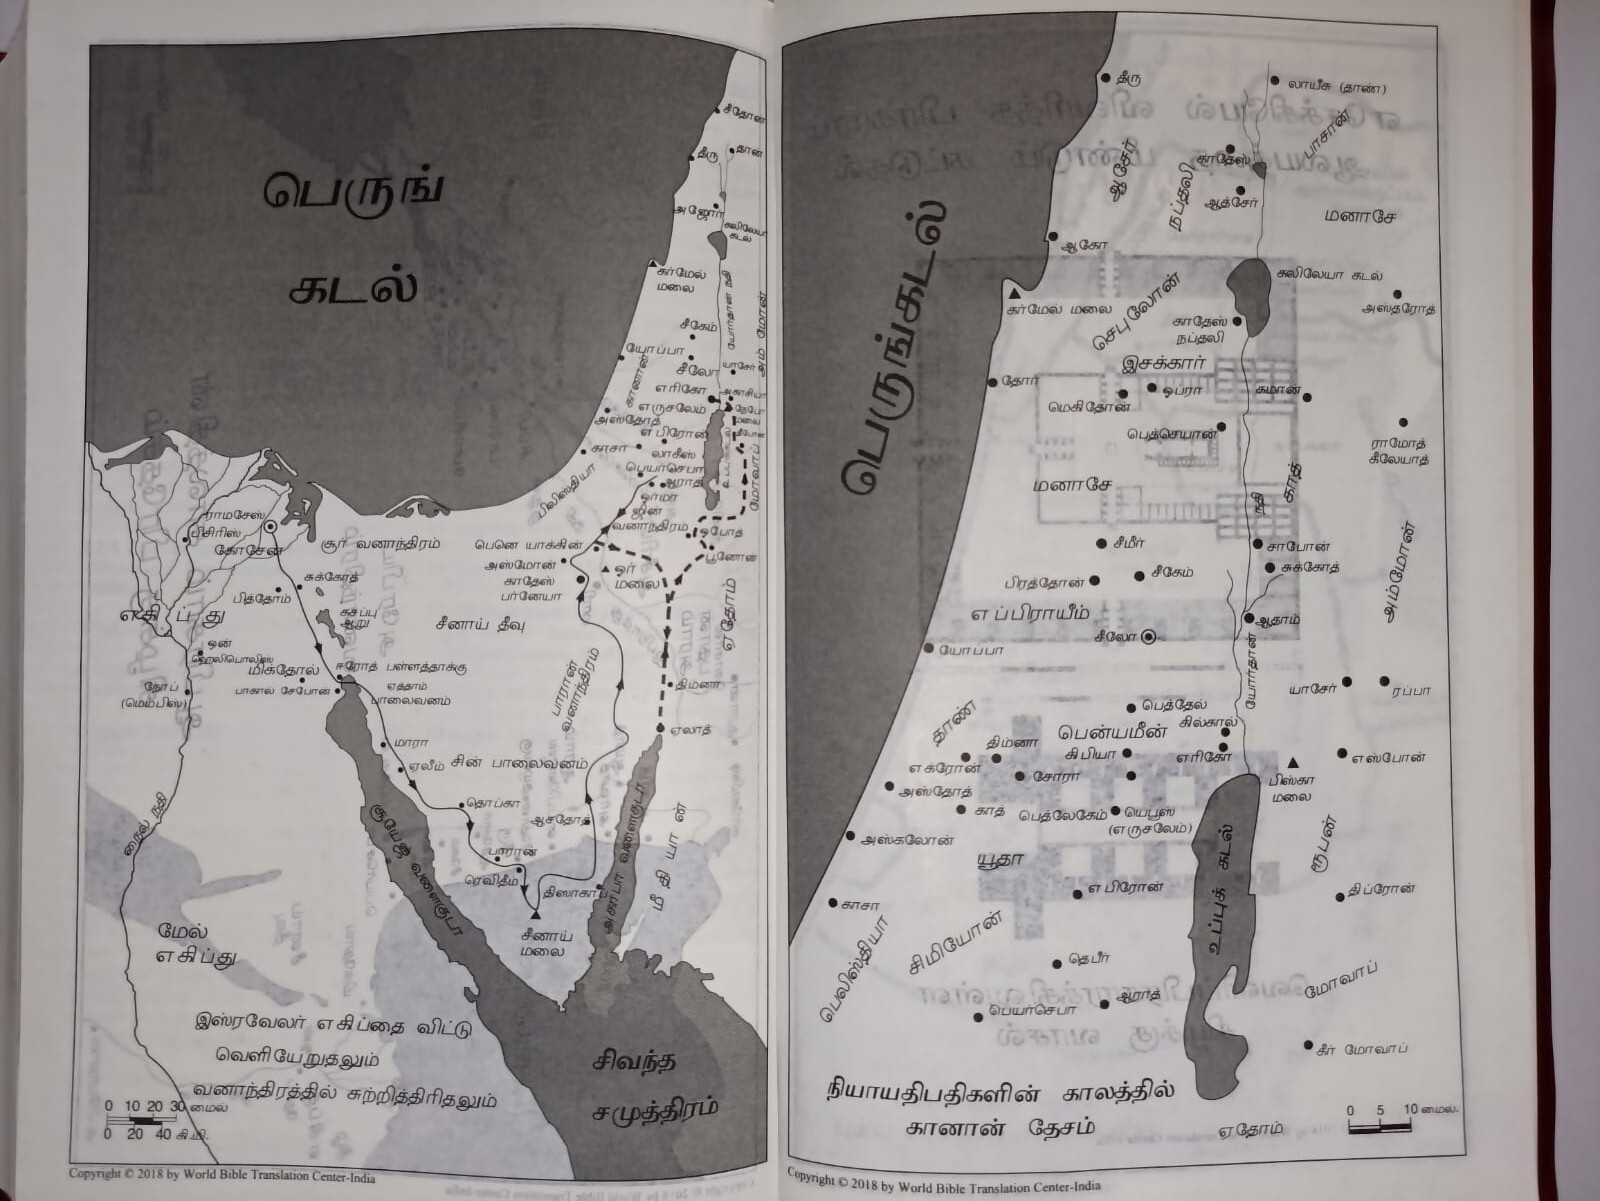 பெருங்
கடல்
சீதோன்
தீரு
தான்
அஜோர்
கலிலேயா
கடல்
கர்மேல்
மலை
யோர்தான் நதி
அம்மோன்
சீகேம்
யோப்பா
சீலோ
யாசேர்
கானான்
எரிகோ
அகாசியா
எருசலேம்
நேபோ
மலை
அஸ்தோத்
எபிரோன்
காசா
லாகீஸ்
பெயர்செபா
ஆராத்
மோவாப்
பிலிஸ்தியா
ஓர்மா
ஜின்
வனாந்திரம்
ஒபோத்
பெனெ யாக்கின்
பூனோன்
அஸ்மோன்
ஓர்
மலை
காதேஸ்
பர்னேயா
ராமசேஸ்
பிசிரிஸ்
கோசேன்
சூர் வனாந்திரம்
சுக்கோத்
பித்தோம்
எகிப்து
கசப்பு
ஆறு
சீனாய் தீவு
ஏதோம்
ஒன்
ஹெலிபொலிஸ்
மிக்தோல்
ஈரோத் பள்ளத்தாக்கு
நோப்
(மெம்பிஸ்)
பாகால் சேபோன்
ஏத்தாம்
பாலைவனம்
பாரான்
வனாந்திரம்
திம்னா
ஏலாத்
மாரா
ஏலீம்
சின் பாலைவனம்
தொப்கா
ஆசதோத்
நைல் நதி
சூயேஜ் வளைகுடா
பாரான்
ரெவிதீம்
திஸாகாப்
அகாபா வளைகுடா
மீதியான்
சீனாய்
மலை
மேல்
எகிப்து
இஸ்ரவேலர் எகிப்தை விட்டு
வெளியேறுதலும்
வனாந்திரத்தில் சுற்றித்திரிதலும்
சிவந்த
சமுத்திரம்
0 10 20 30 மைல்
0 20 40 கி.மி.
Copyright © 2018 by World Bible Translation Center-India
தீரு
லாயீசு (தாண்)
பாசான்
ஆசேர்
காதேஸ்
நப்தலி
ஆத்சேர்
மனாசே
பெருங்கடல்
ஆகோ
கலிலேயா கடல்
கர்மேல் மலை
அஸ்தரோத்
செபுலோன்
காதேஸ்
நப்தலி
இசக்கார்
தோர்
ஒப்ரா
கமான்
மெகிதோன்
பெத்செயான்
ராமோத்
கீலேயாத்
மனாசே
காத்
நதி
சீமீர்
சாபோன்
பிரத்தோன்
சீகேம்
சுக்கோத்
அம்மோன்
எப்பிராயீம்
ஆதாம்
சீலோ
யோப்பா
யோர்தான்
யாசேர்
ரப்பா
பெத்தேல்
தாண்
பென்யமீன்
கில்கால்
திம்னா
கிபியா
எரிகோ
எஸ்போன்
எக்ரோன்
சோரா
பிஸ்கா
மலை
அஸ்தோத்
காத்
பெத்லேகேம்
யெபூஸ்
(எருசலேம்)
அஸ்கலோன்
யூதா
ரூபன்
உப்புக் கடல்
எபிரோன்
திப்ரோன்
காசா
பெலிஸ்தியா
சிமியோன்
தெபீர்
மோவாப்
ஆராத்
பெயர்செபா
கீர் மோவாப்
நியாயதிபதிகளின் காலத்தில்
கானான் தேசம்
ஏதோம்
0 5 10 மைல்.
Copyright © 2018 by World Bible Translation Center-India